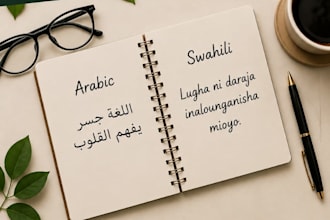 Arabic
اللغة جسر
يفهم القلوب
Swahili
Lugha ni daraja
inalounganisha
mioyo.